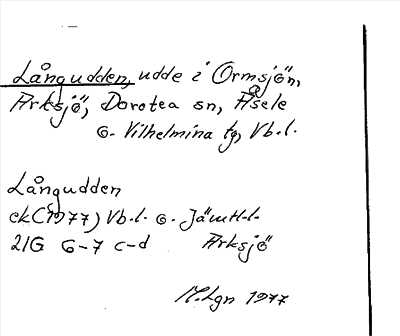 Långudden, udde i Ormsjön,
Arksjö, Dorotea sn, Åsele
o. Vilhelmina tg, Vb.l.
Långudden
ek(1977) Vb.l. o. Jämtl.l.
21G 6-7 c-d Arksjö
M.Lgn 1977